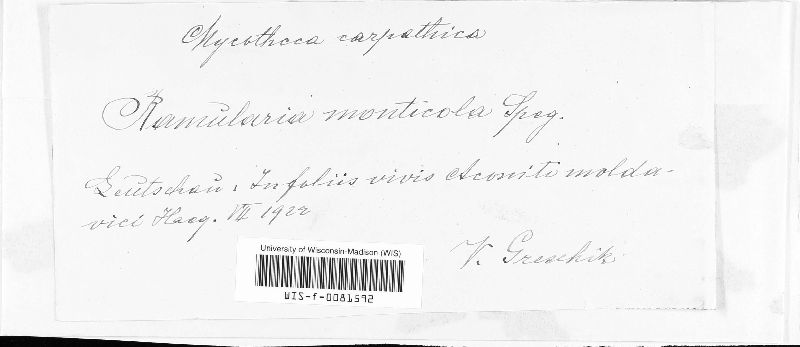 Mycotheca carpathica
Ramularia monticola Speg.
Leutschau. In foliis vivis Aconiti molda-
vici Hacq. VII 1922
V. Greschik
University of Wisconsin-Madison (WIS)
WIS-f-0081592